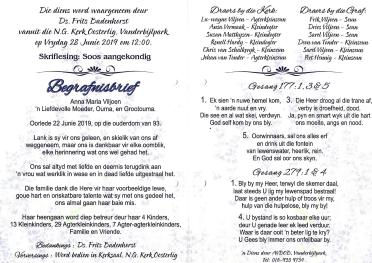 Die diens word waargeneem deur
Ds. Frits Badenhorst
vanuit die N.G. Kerk, Oosterlig, Vanderbijlpark,
op Vrydag 28 Junie 2019 om 12:00.
Skriflesing: Soos aangekondig
Begrafnisbrief
Anna Maria Viljoen
'n Liefdevolle Moeder, Ouma, en Grootouma.
Oorlede 22 Junie 2019, op die ouderdom van 93.
Lank is sy vir ons geleen, en skielik van ons af
weggeneem, maar ons is dankbaar vir elke oomblik,
elke herinnering wat ons wel gehad het...
Ons sal altyd met liefde en deernis terugdink aan
'n vrou wat werklik in wese en in daad liefde uitgestraal het.
Die familie dank die Here vir haar voorbeeldige lewe,
goue hart en onskatbare talente wat sy met ons gedeel het,
ons almal gaan haar baie mis.
Haar heengaan word diep betreur deur haar 4 Kinders,
13 Kleinkinders, 29 Agterkleinkinders, 7 Agter-agterkleinkinders,
Familie en Vriende.
Bedankings : Ds. Frits Badenhorst
Verversings : Word bedien in Kerksaal, N.G. Kerk, Oosterlig
Draers by die Kerk:
La-wayne Viljoen - Agterkleinseun
Chris van Schalkwyk - Kleinseun
Johan van Tonder - Agterkleinseun
Draers by die Graf:
Frik Viljoen - Seun
Dries Viljoen - Seun
Sarel Viljoen - Seun
Dean van Tonder - Kleinseun
Sarel Viljoen - Kleinseun
Gesang 177:1,3 & 5
1. Ek sien 'n nuwe hemel kom,
'n aarde nuut en vry.
Die see en al wat skei, verdwyn,
God self kom by ons bly.
3. Die Heer droog al die trane af,
verby is droefheid, dood.
Ja, pyn en smart wyk uit die hart
ons moeite, angs en nood.
5. Oorwinnaars, sal ons alles erf
en drink uit die fontein
van lewenswater, heerlik, rein.
En God sal oor ons skyn.
Gesang 279:1 & 4
1. Bly by my Heer, terwyl die skemer daal,
laat steeds U lig my lewenspad bestraal!
Daar is geen ander hulp of troos vir my,
hulp van die hulpelose, bly by my!
4. U bystand is so kosbaar elke uur;
deur U genade leer ek leed verduur.
Waar is daar ooit 'n beter lig te kry?
U Gees bly immer ons onfeilbaar by.
'n Diens deur AVBOB, Vanderbijlpark,